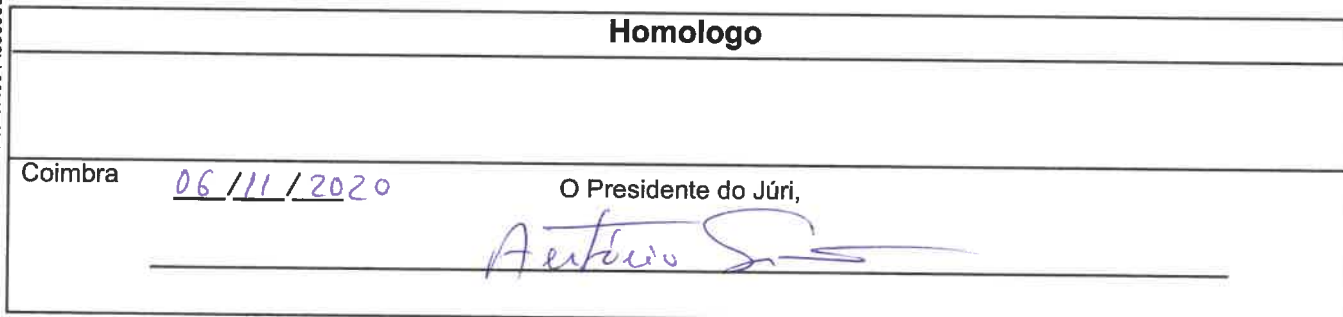 Homologo
Coimbra 06/11/2020 O Presidente do Júri,
António